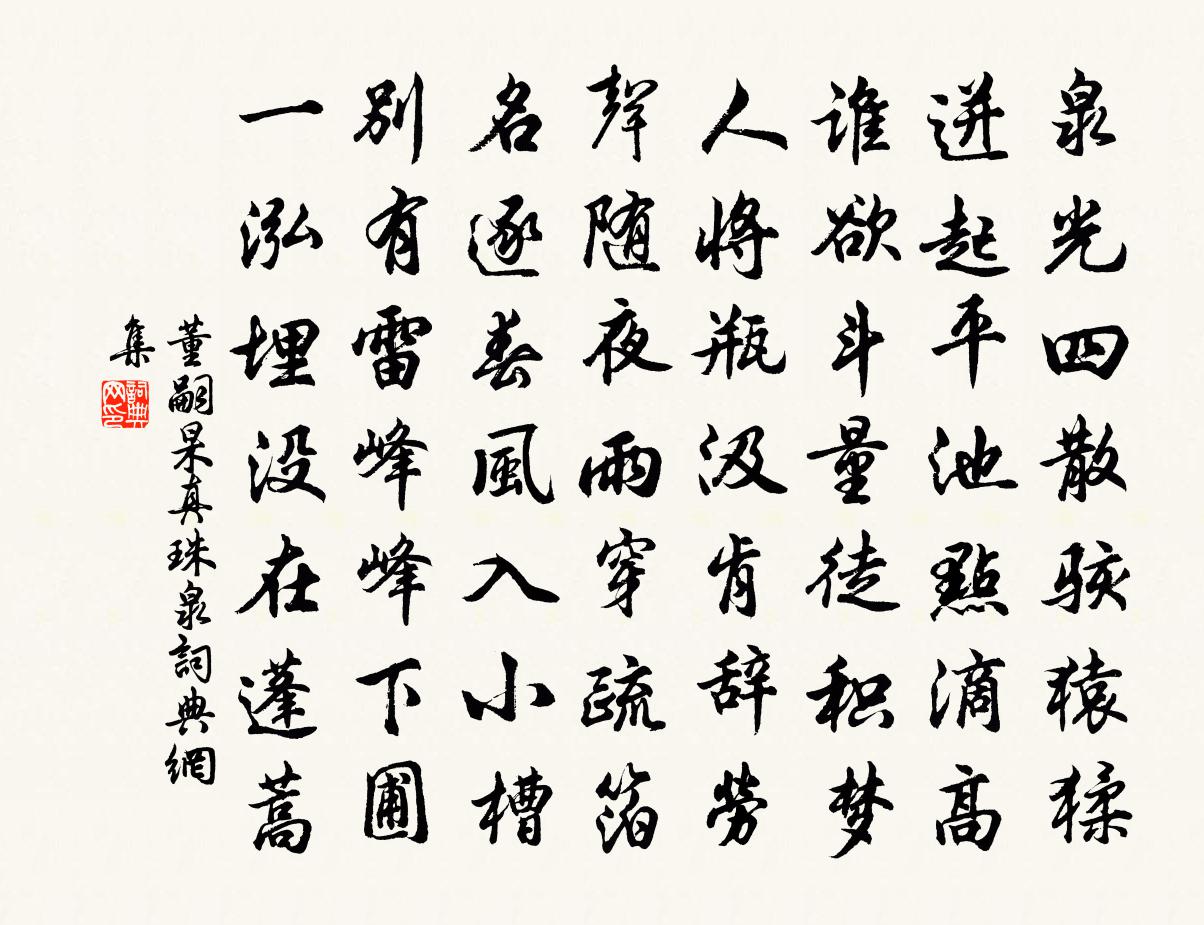 泉光四散駭猿猱
迸起平池點滴高
谁欲斗量徒积梦
人將瓶汲肯辞勞
聲随夜雨穿疏箔
名逐春風入小槽
別有雷峰峰下圃
一泓埋没在蓬蒿
董嗣杲真珠泉詞典網
集
詞典网印